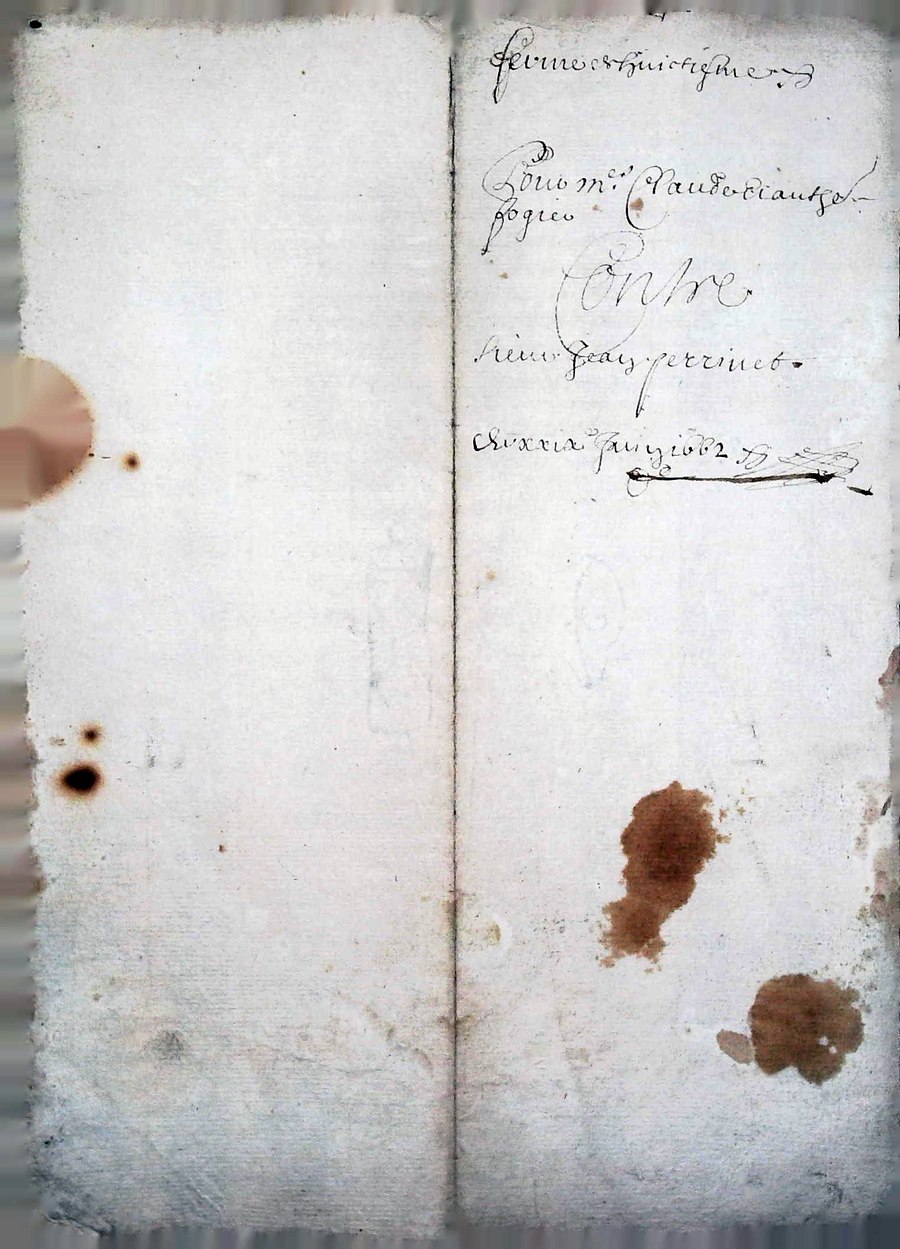 ferme du huictiesme
Pour me Claude
fogier
Contre
sieur Jean perrinet
du xxixe Juin 1662